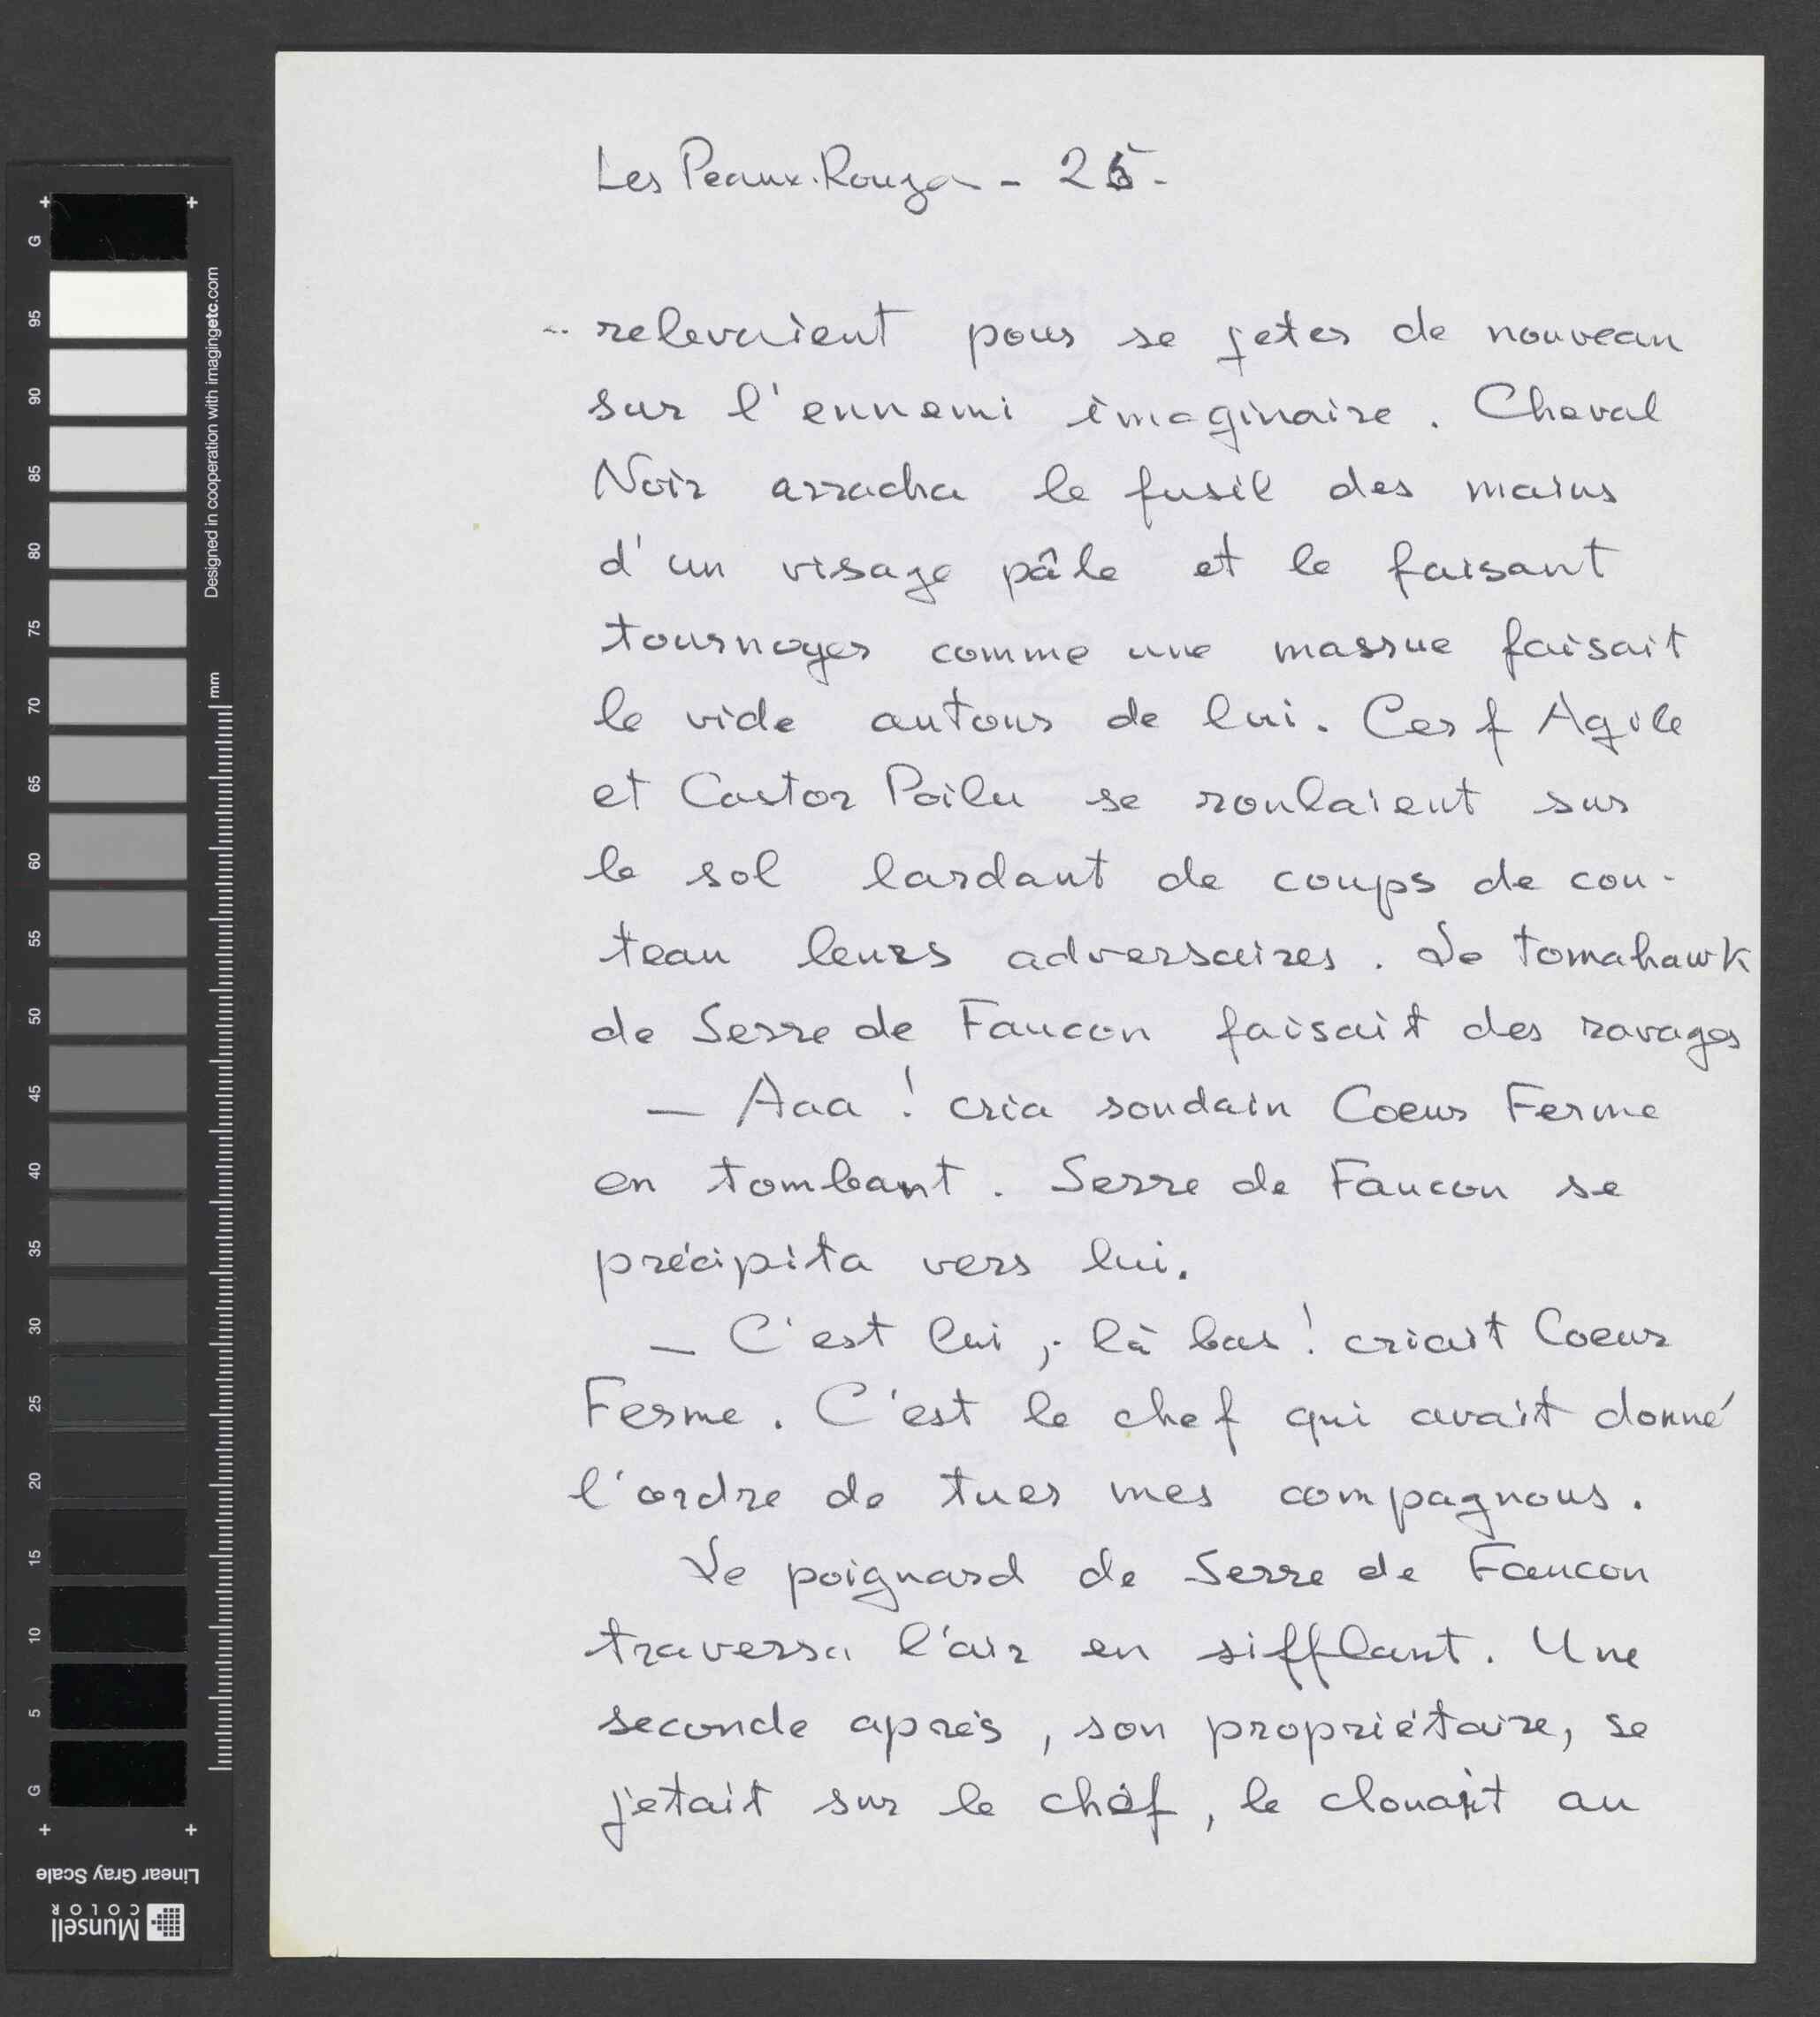 Les Peaux-Rouges - 26 -
... relevaient pour se jeter de nouveau
sur l'ennemi imaginaire. Cheval
Noir arracha le fusil des mains
d'un visage pâle et le faisant
tournoyer comme une massue faisait
le vide autour de lui. Cerf Agile
et Castor Poilu se roulaient sur
le sol lardant de coups de cou-
teau leurs adversaires. Le tomahawk
de Serre de Faucon faisait des ravages
— Aaa ! cria soudain Coeur Ferme
en tombant. Serre de Faucon se
précipita vers lui.
— C'est lui, là bas ! criait Coeur
Ferme. C'est le chef qui avait donné
l'ordre de tuer mes compagnons.
Le poignard de Serre de Faucon
traversa l'air en sifflant. Une
seconde après, son propriétaire, se
jetait sur le chef, le clouait au
G 95 90 85 80 75 70 65 60 55 50 45 40 35 30 25 20 15 10 5 G
Designed in cooperation with imagingetc.com
mm
Linear Gray Scale
Munsell
COLOR